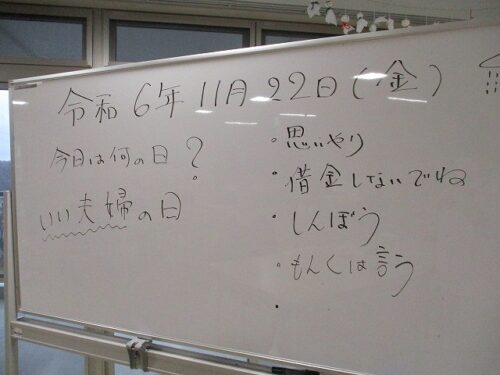 令和6年11月22日(金)
今日は何の日?
いい夫婦の日
・思いやり
・借金しないでね
・しんぼう
・もんくは言う
・